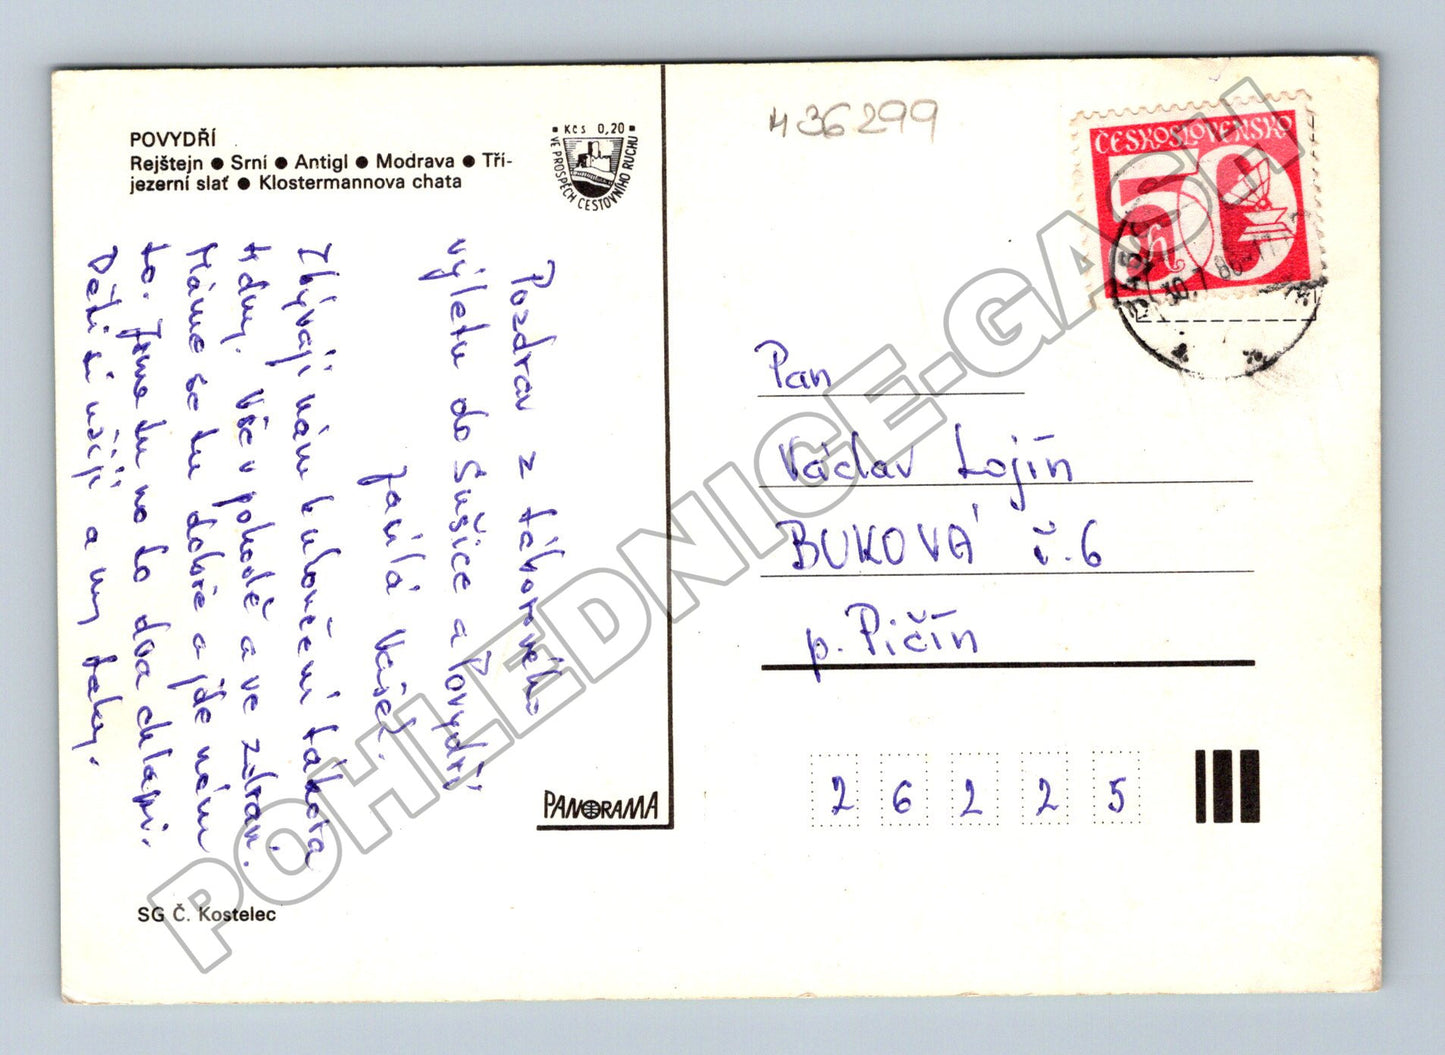 POVYDŘÍ
Rejštejn ● Srní ● Antigl ● Modrava ● Tří-
jezerní slať ● Klostermannova chata
Kčs 0,20
VE PROSPĚCH CESTOVNÍHO RUCHU
Pozdrav z táborového
výletu do Sušice a Povydří
Vašek.
Zbývají nám k ukončení tábora
4 dny. Vše v pohodě a ve zdraví.
Máme se tu dobře a jde nám
to. Jsme tu na to dva chlapi.
Děti si užijí a my taky.
PANORAMA
SG Č. Kostelec
436299
ČESKOSLOVENSKO
50 h
30.7.86-17
Pan
Václav Lojín
BUKOVÁ č.6
p. Pičín
26225
POHLEDNICE-GASH